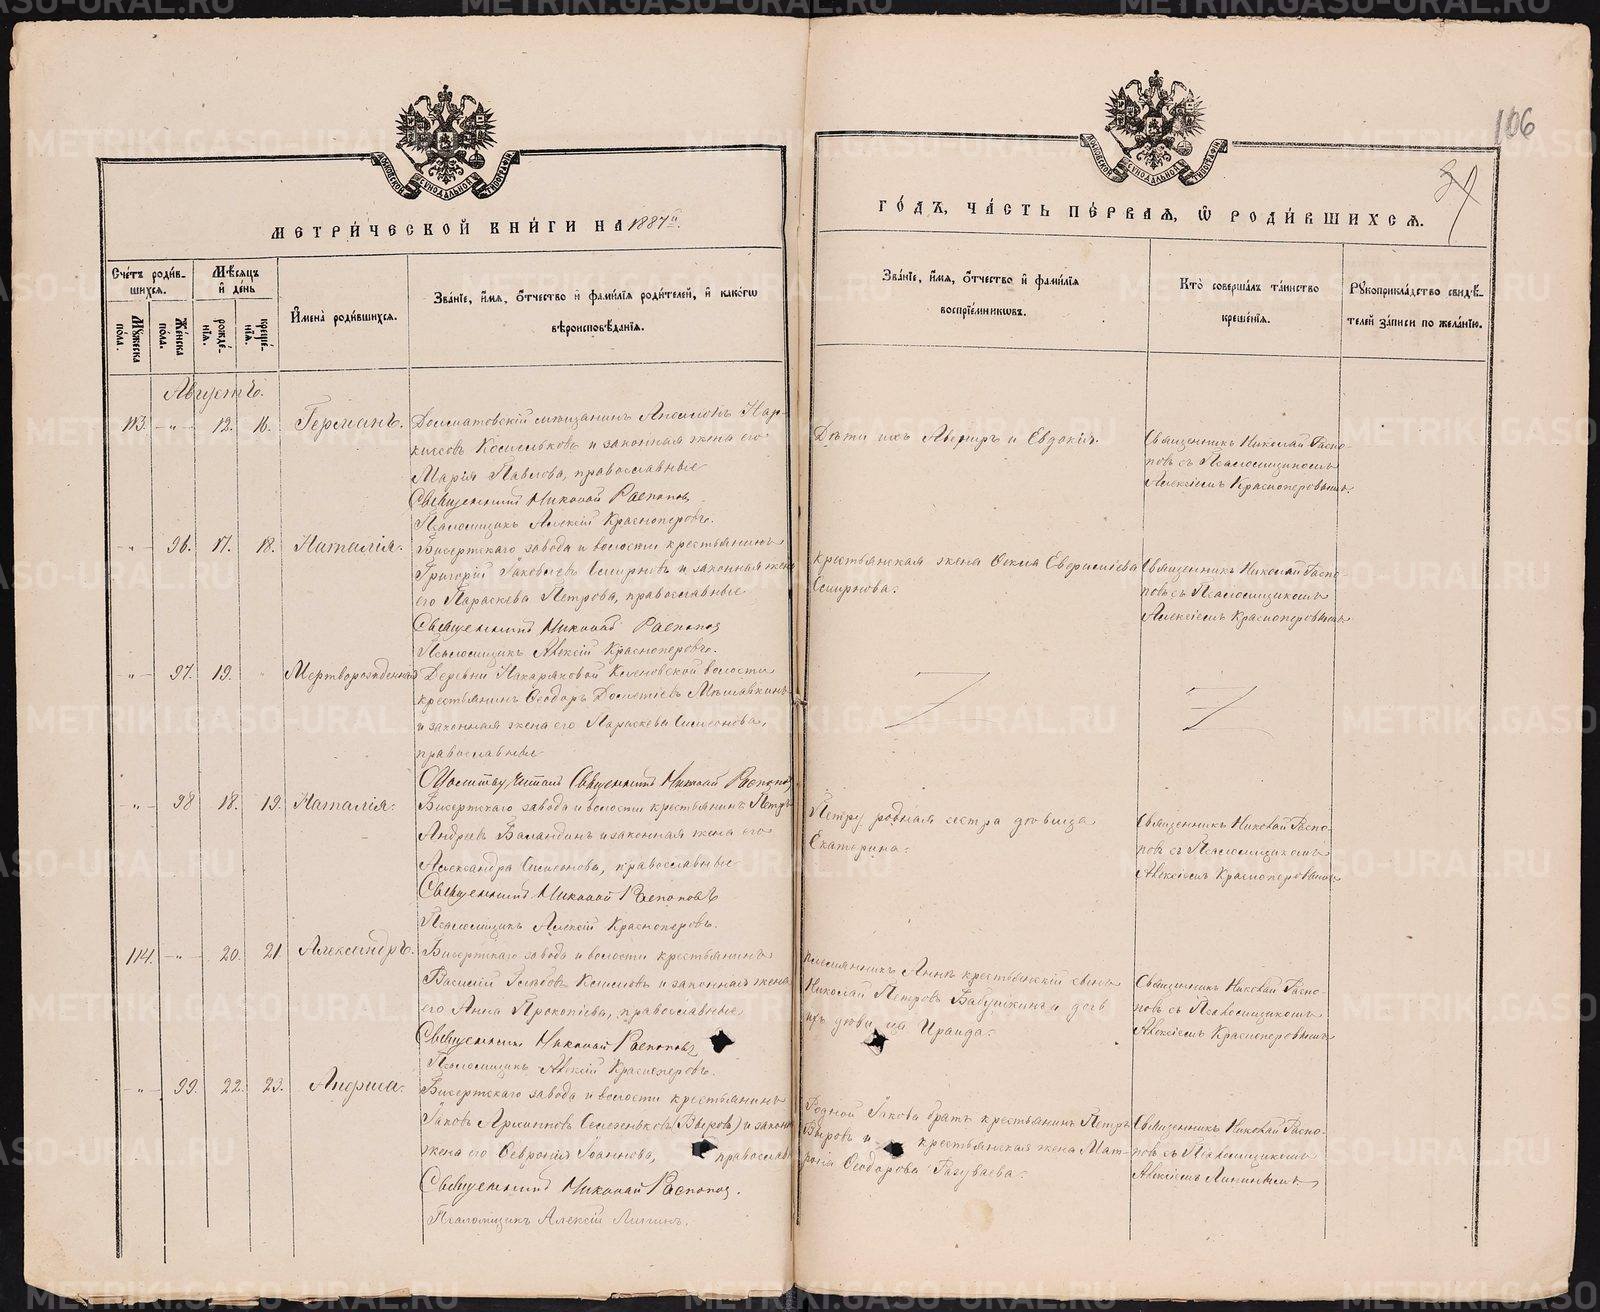 106
МЕТРИ́ЧЕСКОЙ КНИ́ГИ НА 1887й.
ГО́ДЪ, ЧА́СТЬ ПЕ́РВАЯ, Ѡ РОДИ́ВШИХСЯ.
Сче́тъ роди́в-
шихся.
Мѣ́сяцъ
и҆ де́нь
Му́жеска
по́ла.
Же́нска
по́ла.
рожде́-
нїя.
креще́-
нїя.
И҆мена̀ роди́вшихся.
Зва́нїе, и҆́мя, ѻ҆́тчество и҆ фами́лїя роди́телей, и҆ како́гѡ
вѣроисповѣ́данїя.
Зва́нїе, и҆́мя, ѻ҆́тчество и҆ фами́лїя
воспрїе́мникѡвъ.
Кто̀ соверша́лъ та́инство
креще́нїя.
Рꙋкоприкла́дство свидѣ́-
телей за́писи по жела́нїю.
Августъ.
113. -"- 12. 16. Германъ.
Долматовскій мѣщанинъ
и законная жена его
Марія Павлова, православные
Священникъ Николай Распоповъ
Псаломщикъ Алексій Красноперовъ.
Дѣти ихъ Авениръ и Евдокія.
Священникъ Николай Распо-
повъ съ Псаломщикомъ
Алексіемъ Красноперовымъ.
-"- 96. 17. 18. Наталія.
Бисертскаго завода и волости крестьянинъ
Григорій Іаковлевъ Смирновъ и законная жена
его Параскева Петрова, православные
Священникъ Николай Распоповъ
Псаломщикъ Алексій Красноперовъ.
крестьянская жена Ѳекла
Смирнова.
Священникъ Николай Распо-
повъ съ Псаломщикомъ
Алексіемъ Красноперовымъ
-"- 97. 19. " Мертворожденная
Деревни Накаряковой Кленовской волости
крестьянинъ Ѳеодоръ
и законная жена его Параскева Симеонова,
православные
Молитву читалъ Священникъ Николай Распоповъ
-"- 98 18. 19. Наталія.
Бисертскаго завода и волости крестьянинъ Петръ
Андреевъ Баландинъ и законная жена его
Александра Симеонова, православные
Священникъ Николай Распоповъ
Псаломщикъ Алексій Красноперовъ.
Петру родная сестра дѣвица
Екатерина.
Священникъ Николай Распо-
повъ съ Псаломщикомъ
Алексіемъ Красноперовымъ
114. -"- 20. 21. Александръ.
Бисертскаго завода и волости крестьянинъ
Василій и законная жена
его Анна Прокопіева, православные
Священникъ Николай Распоповъ
Псаломщикъ Алексій Красноперовъ.
племянникъ Аннѣ крестьянскій сынъ
Николай Петровъ Бабушкинъ и дочь
ихъ дѣвица Ираида.
Священникъ Николай Распо-
повъ съ Псаломщикомъ
Алексіемъ Красноперовымъ
-"- 99. 22. 23. Анфиса.
Бисертскаго завода и волости крестьянинъ
Іаковъ (Выровъ) и законная
жена его Февронія Іоаннова, православные
Священникъ Николай Распоповъ.
Псаломщикъ Алексій Липинъ.
Родной Іакова братъ крестьянинъ Петръ
Выровъ и крестьянская жена Мат-
рона Ѳеодорова Разуваева.
Священникъ Николай Распо-
повъ съ Псаломщикомъ
Алексіемъ Липинымъ
METRIKI.GASO-URAL.RU